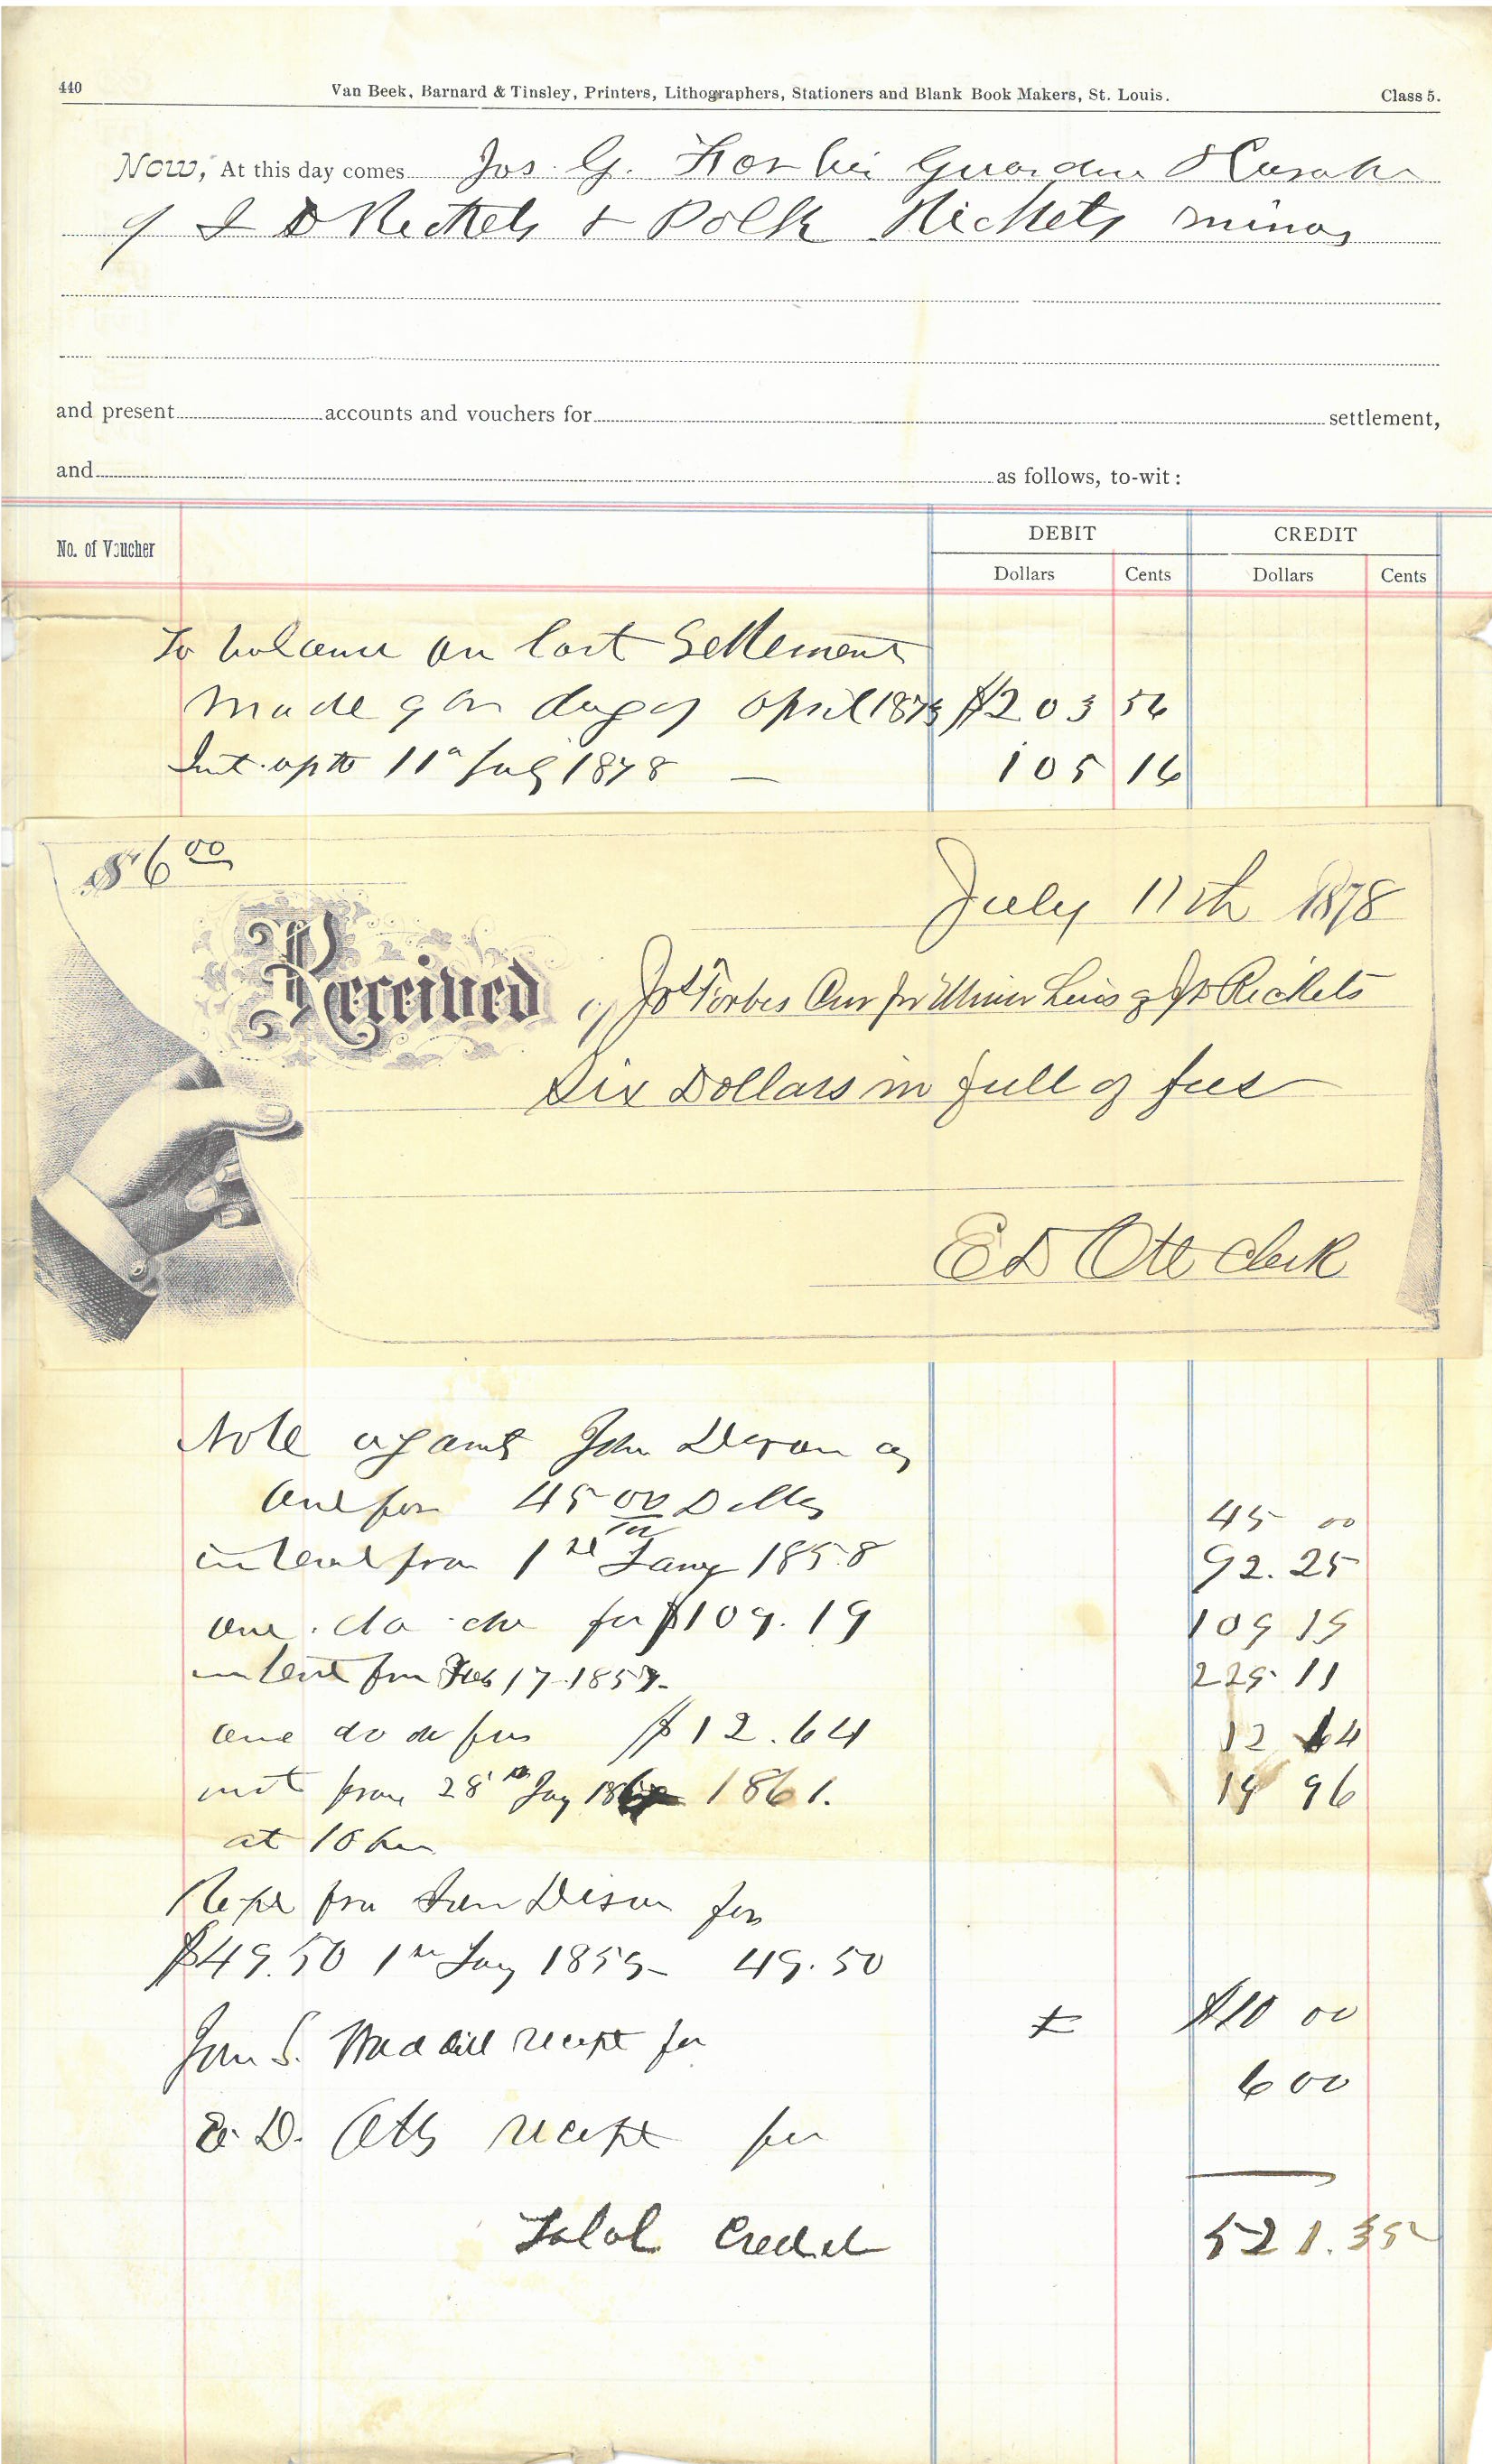 440 Van Beek, Barnard & Tinsley, Printers, Lithographers, Stationers and Blank Book Makers, St. Louis. Class 5.
Now, At this day comes Jos. G. Forbis Guardian & Curator
of J D Rickets & Polk Rickets minors
and present accounts and vouchers for settlement,
and as follows, to-wit:
No. of Voucher DEBIT CREDIT
Dollars Cents Dollars Cents
To balance on last Settlement
made 9th day of April 1873 $203 56
Int. up to 11th July 1878 — 105 16
$6 00
July 11th 1878
Received of Jos Forbes Cur for Minor Heirs of J D Rickets
Six Dollars in full of fees
E D Ott Clerk
Note against John Dixon
one for 45 00 Dolls 45 00
interest from 1st Jany 1858 92.25
one do do for $109.19 109 19
interest from Feb 17 1857 225 11
one do do for $12.64 12 64
int from 28th Jany 1861.
19 96
at 10 per
Rept from Dixon for
$49.50 1st Jany 1859 - 49.50
Jon S. Waddill receipt for $10 00
E. D. Otts receipt for 6 00
Total Credit 521.35